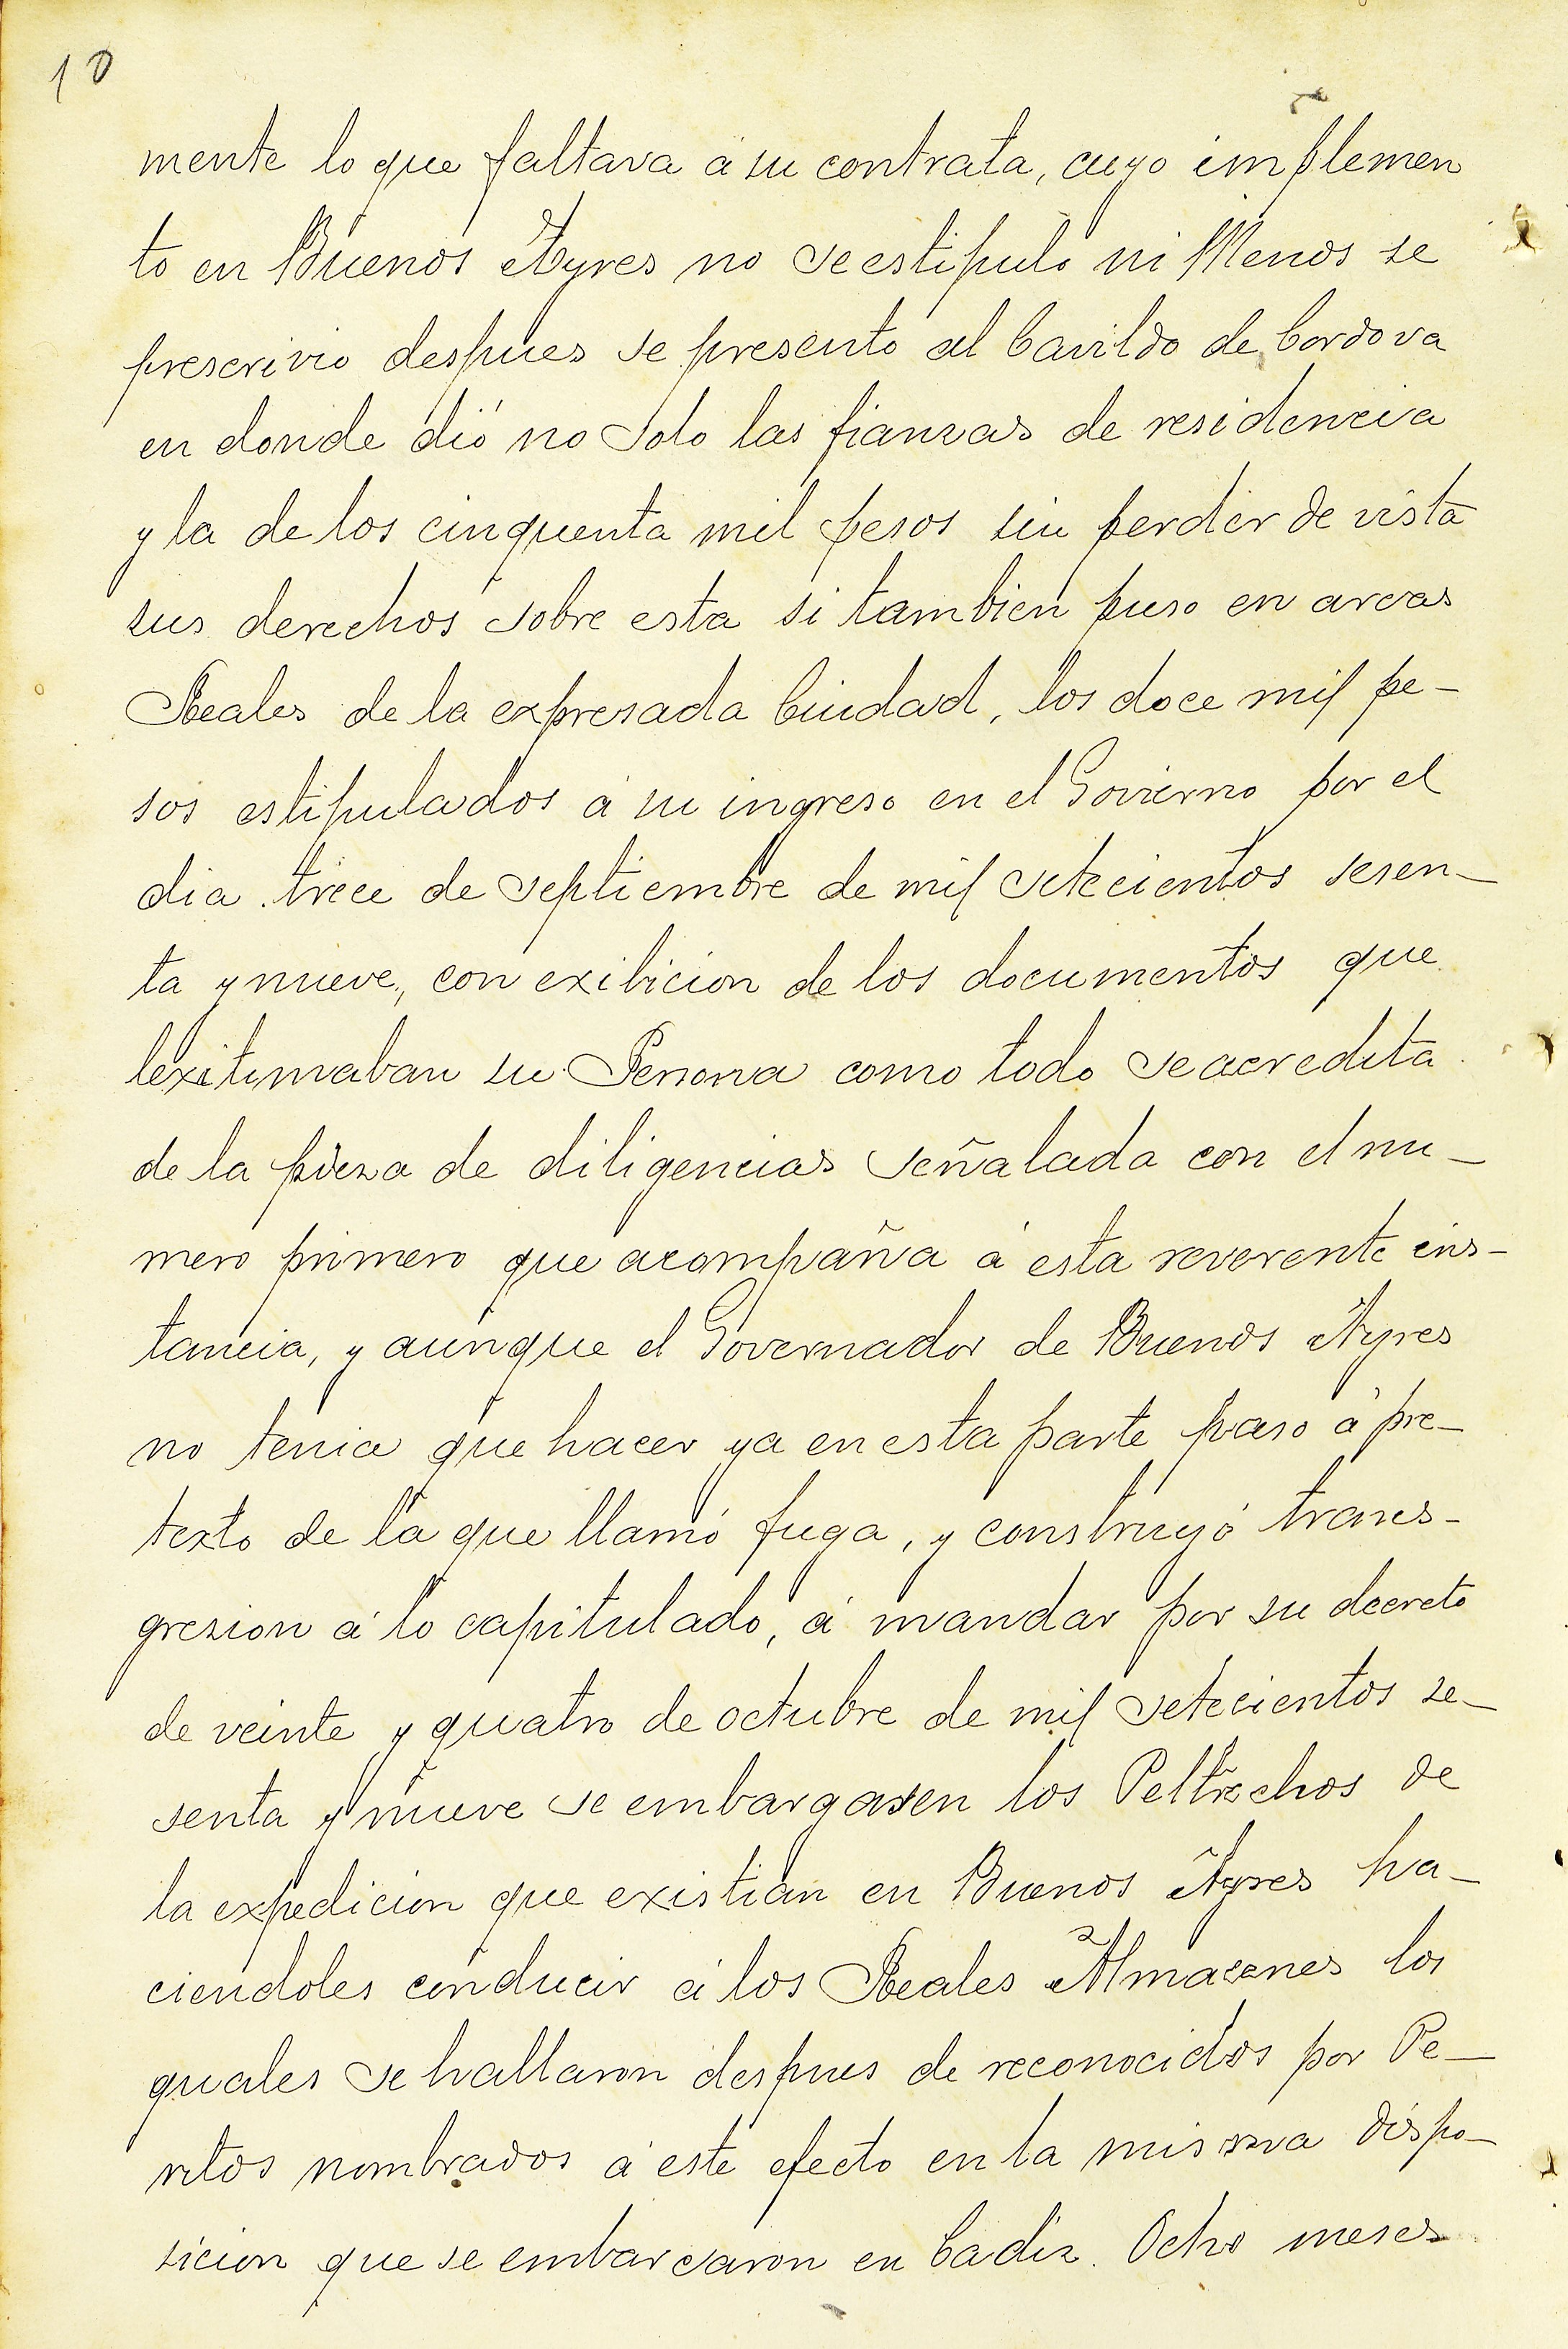 10
mente lo que faltava á su contrata, cuyo implemen
to en Buenos Ayres no se estipuló ni Menos se
prescrivio despues se presento al Cavildo de Cordova
en donde dió no solo las fianzas de residencia
y la de los cinquenta mil pesos sin perder de vista
sus derechos sobre esta si tambien puso en arcas
Reales de la expresada Ciudad, los doce mil pe-
sos estipulados á su ingreso en el Govierno por el
dia trece de septiembre de mil setecientos sesen-
ta y nueve, con exibicion de los documentos que
lexitimaban su Persona como todo se acredita
de la pieza de diligencias señalada con el nu-
mero primero que acompaña á esta reverente ins-
tancia, y aunque el Governador de Buenos Ayres
no tenia que hacer ya en esta parte paso á pre-
texto de la que llamó fuga, y construyó trans-
gresion á lo capitulado, á mandar por su decreto
de veinte y quatro de octubre de mil setecientos se-
senta y nueve se embargasen los Peltrechos de
la expedicion que existian en Buenos Ayres ha-
ciendoles conducir á los Reales Almacenes los
quales se hallaron despues de reconocidos por Pe-
ritos nombrados á este efecto en la misma dispo-
sicion que se embarcaron en Cadiz. Ocho meses